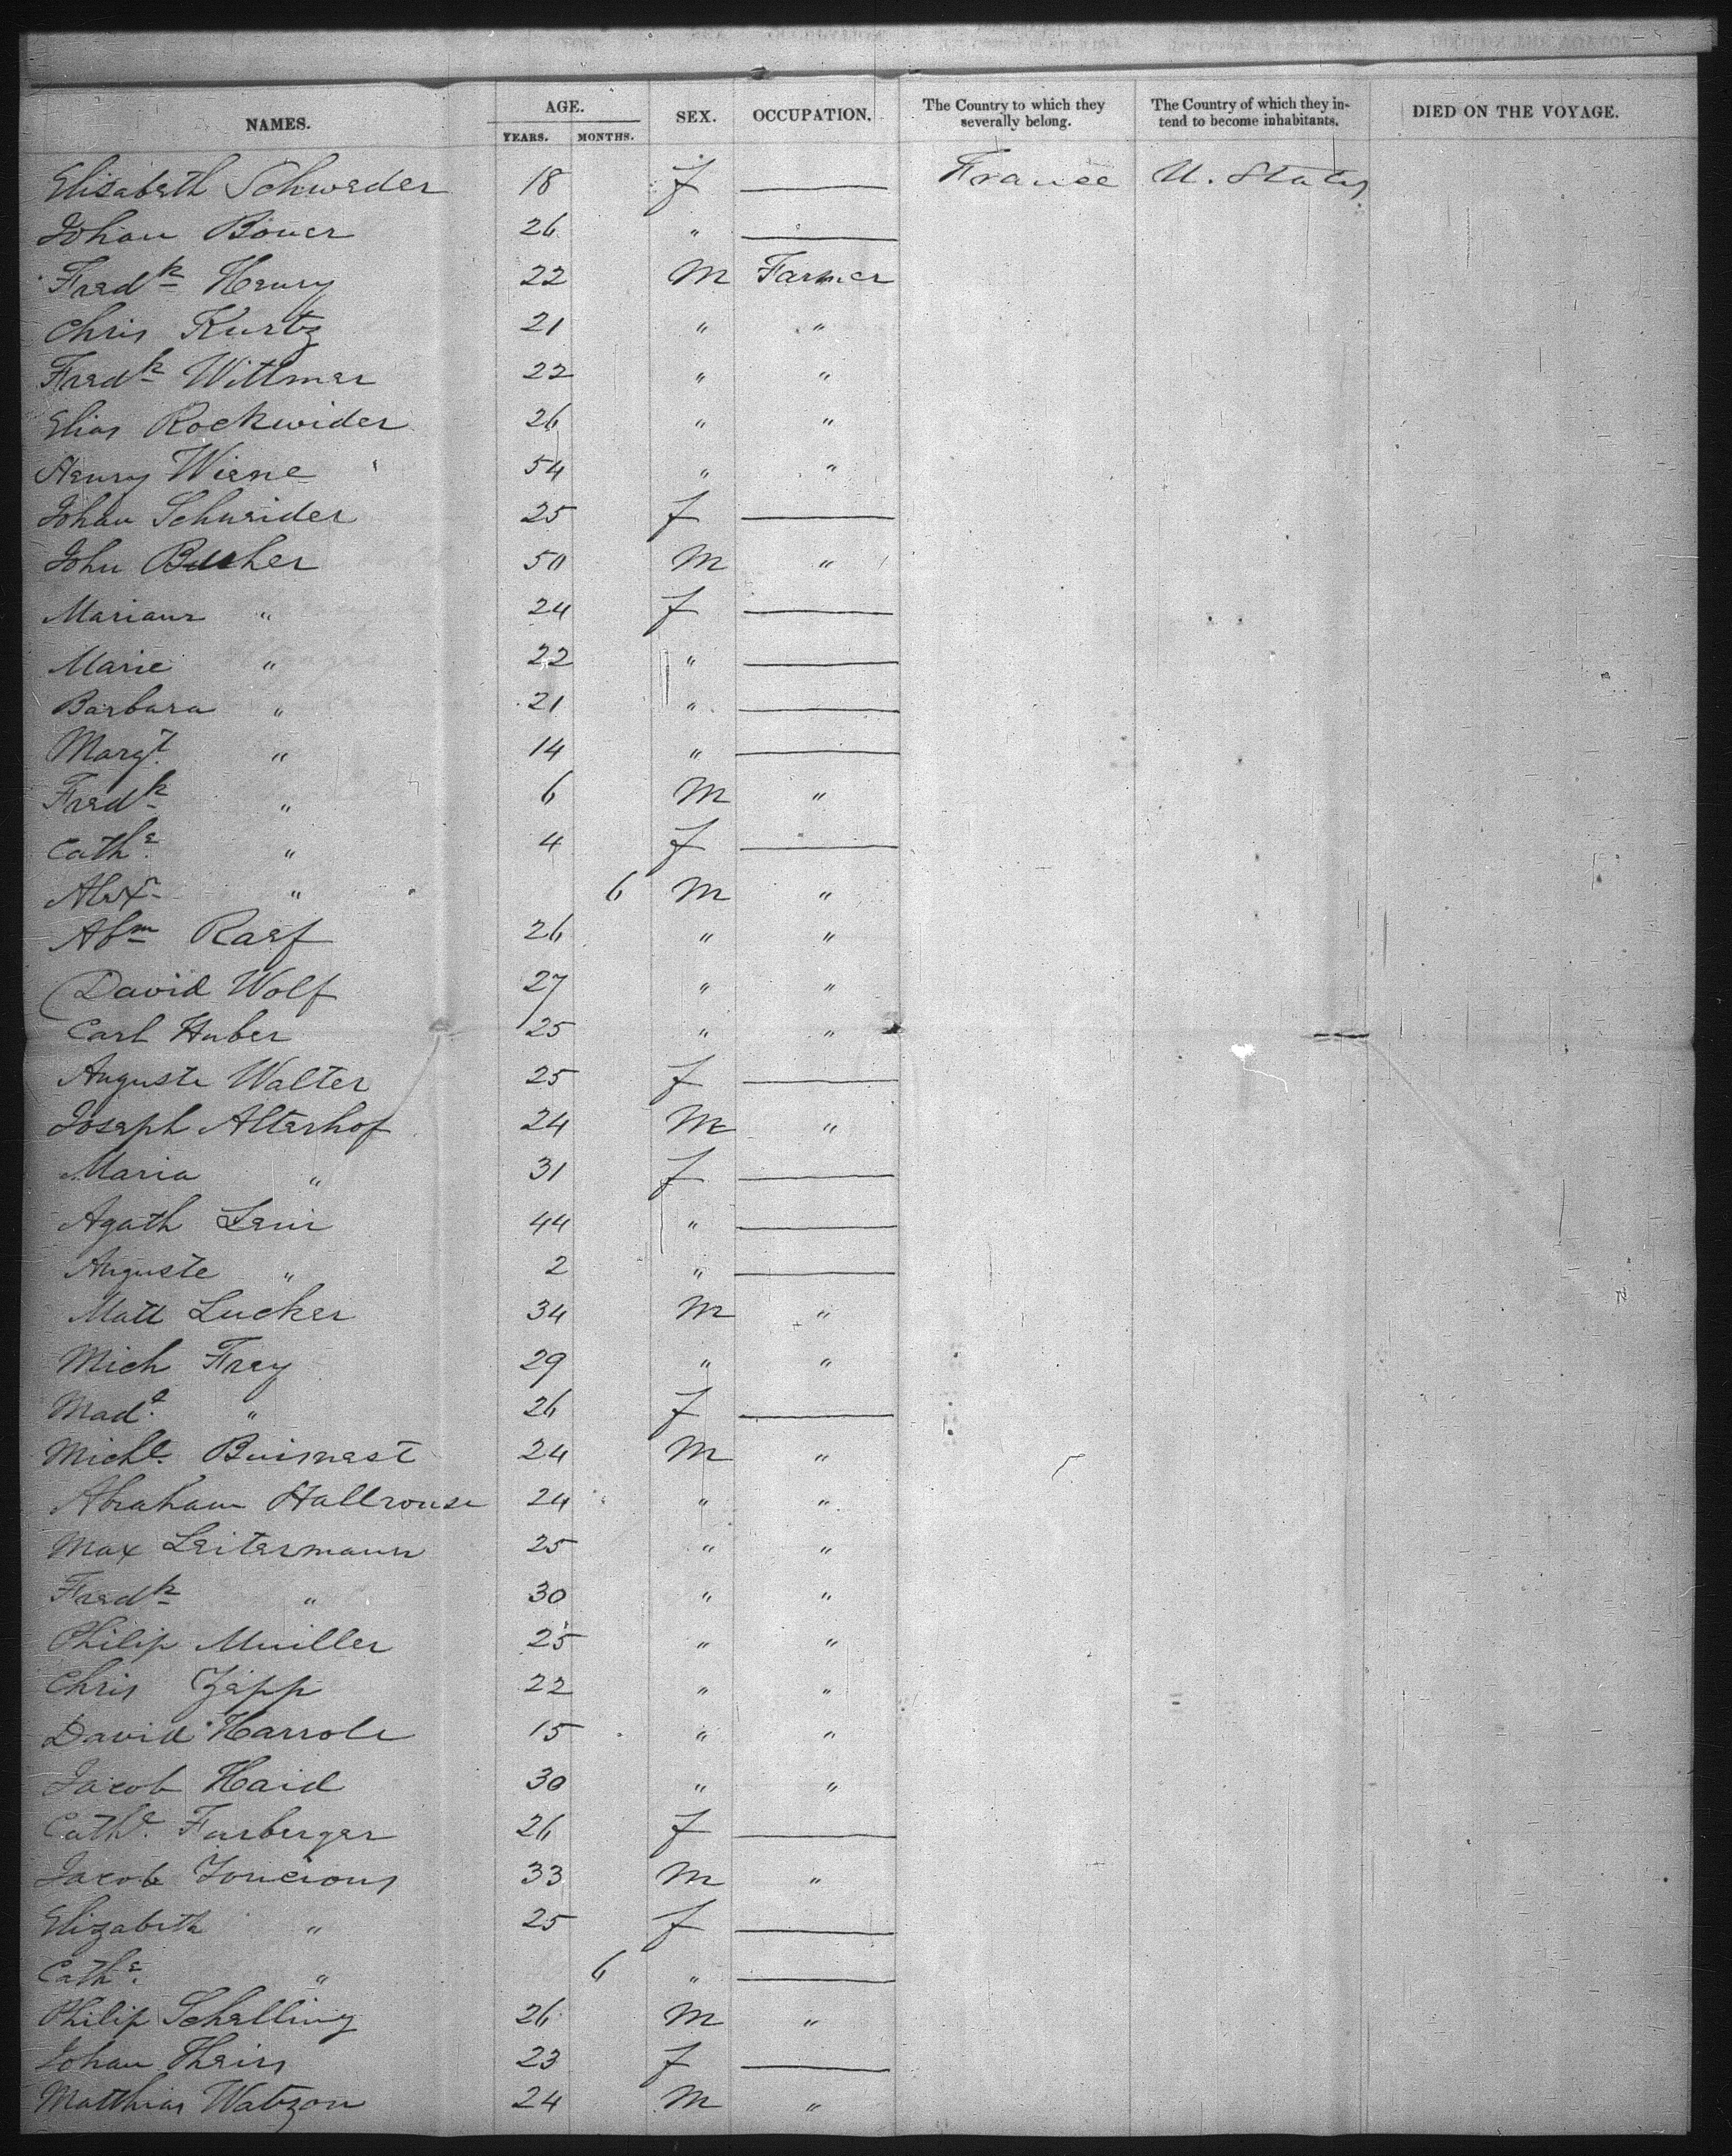 NAMES. AGE. SEX. OCCUPATION. The Country to which they severally belong. The Country of which they intend to become inhabitants. DIED ON THE VOYAGE.
YEARS. MONTHS.
Elisabeth Schweder 18 f — France U. States
Johan Bouer 26 " —
Fredk Henry 22 M Farmer
Chris Kurtz 21 " "
Fredk Wittmer 22 " "
Elias Rockwider 26 " "
Henry Wiene 54 " "
Johan Schneider 25 f —
John Bucher 50 M "
Mariane " 24 f —
Marie " 22 " —
Barbara " 21 " —
Margt. " 14 " —
Fredk " 6 M "
Cathe. " 4 f —
Alexr " 6 M "
Abm Raef 26 " "
David Wolf 27 " "
Carl Huber 25 " "
Auguste Walter 25 f —
Joseph Alterhof 24 M "
Maria " 31 f —
Agath 44 " —
Auguste " 2 " —
Matt Lucker 34 M "
Mich Frey 29 " "
Made. " 26 f —
Michl. Buisnest 24 M "
Abraham Hallrouse 24 " "
Max Leitermann 25 " "
Fredk " 30 " "
Philip Muiller 25 " "
Chris Zepp 22 " "
David Harrole 15 " "
Jacob Haid 30 " "
Cathe. Furberger 26 f —
Jacob 33 M "
Elizabeth " 25 f —
Cathe. " 6 " —
Philip Schelling 26 M "
Johan Theirs 23 f —
Matthias Watzon 24 M "